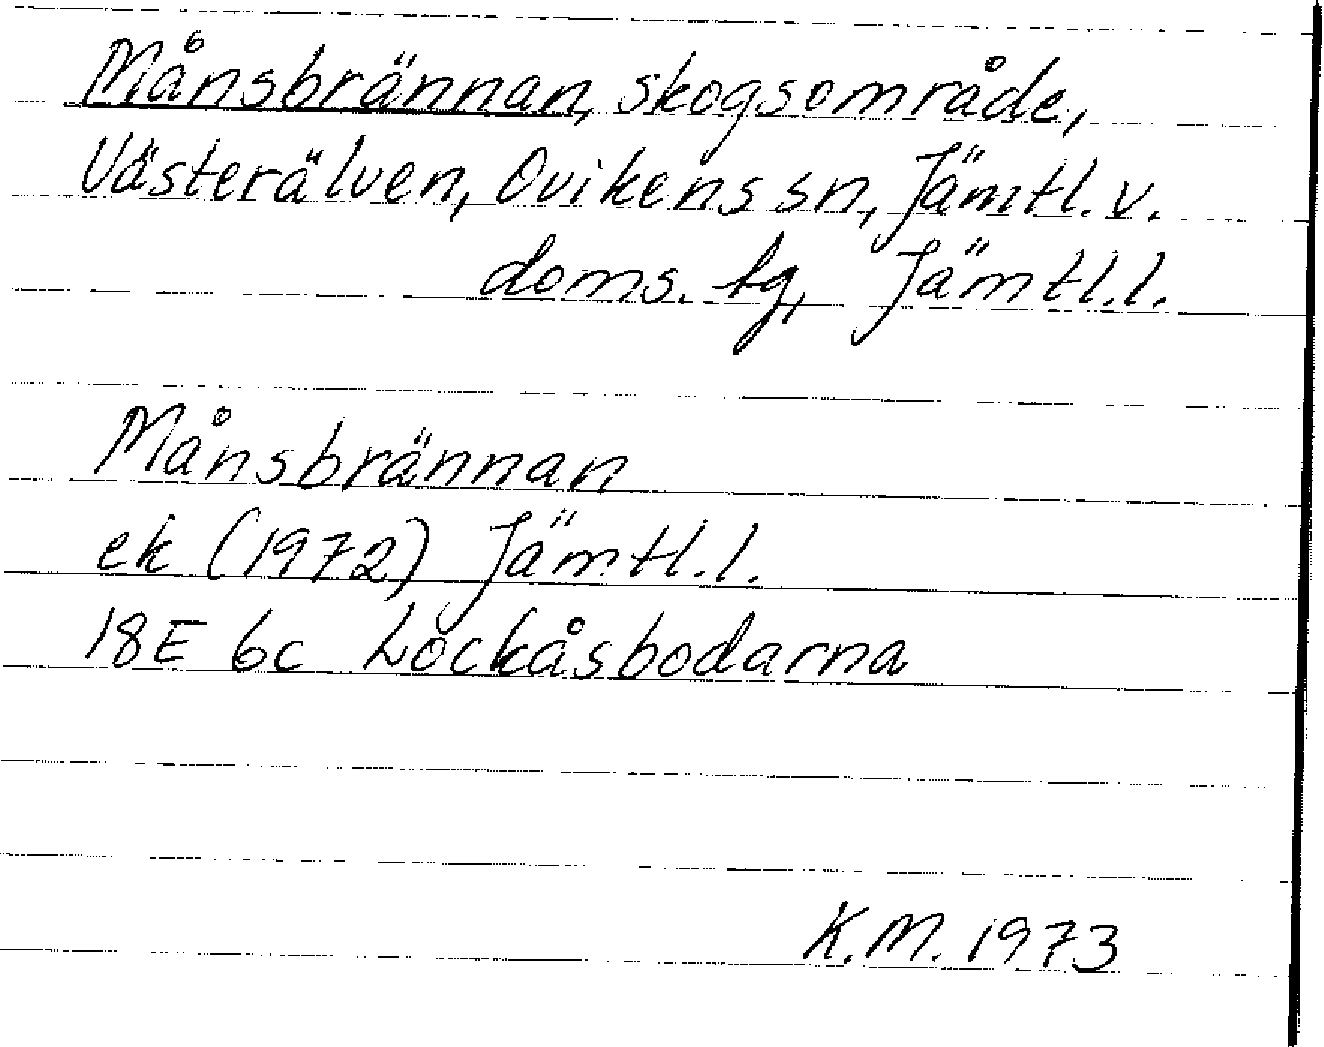 Månsbrännan, skogsområde,
Västerälven, Ovikens sn, Jämtl. v.
doms. tg, Jämtl.l.
Månsbrännan
ek (1972) Jämtl.l.
18E 6c Lockåsbodarna
K.M. 1973